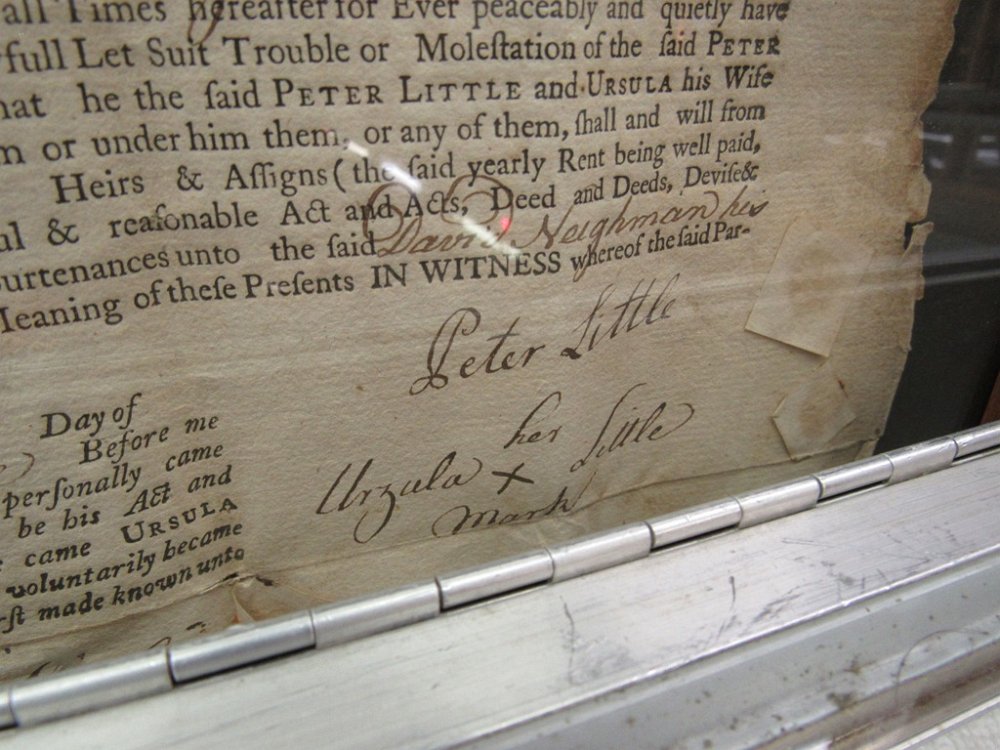 all Times hereafter for Ever peaceably and quietly have
full Let Suit Trouble or Moleſtation of the ſaid PETER
hat he the ſaid PETER LITTLE and URSULA his Wife
m or under him them, or any of them, ſhall and will from
Heirs & Aſſigns (the ſaid yearly Rent being well paid,
al & reaſonable Act and Acts, Deed and Deeds, Deviſe&
urtenances unto the ſaid David Neighman his
Meaning of theſe Preſents IN WITNESS whereof the ſaid Par-
Peter Little
her
Urzula × Little
mark
Day of
Before me
perſonally came
be his Act and
came URSULA
voluntarily became
rſt made known unto